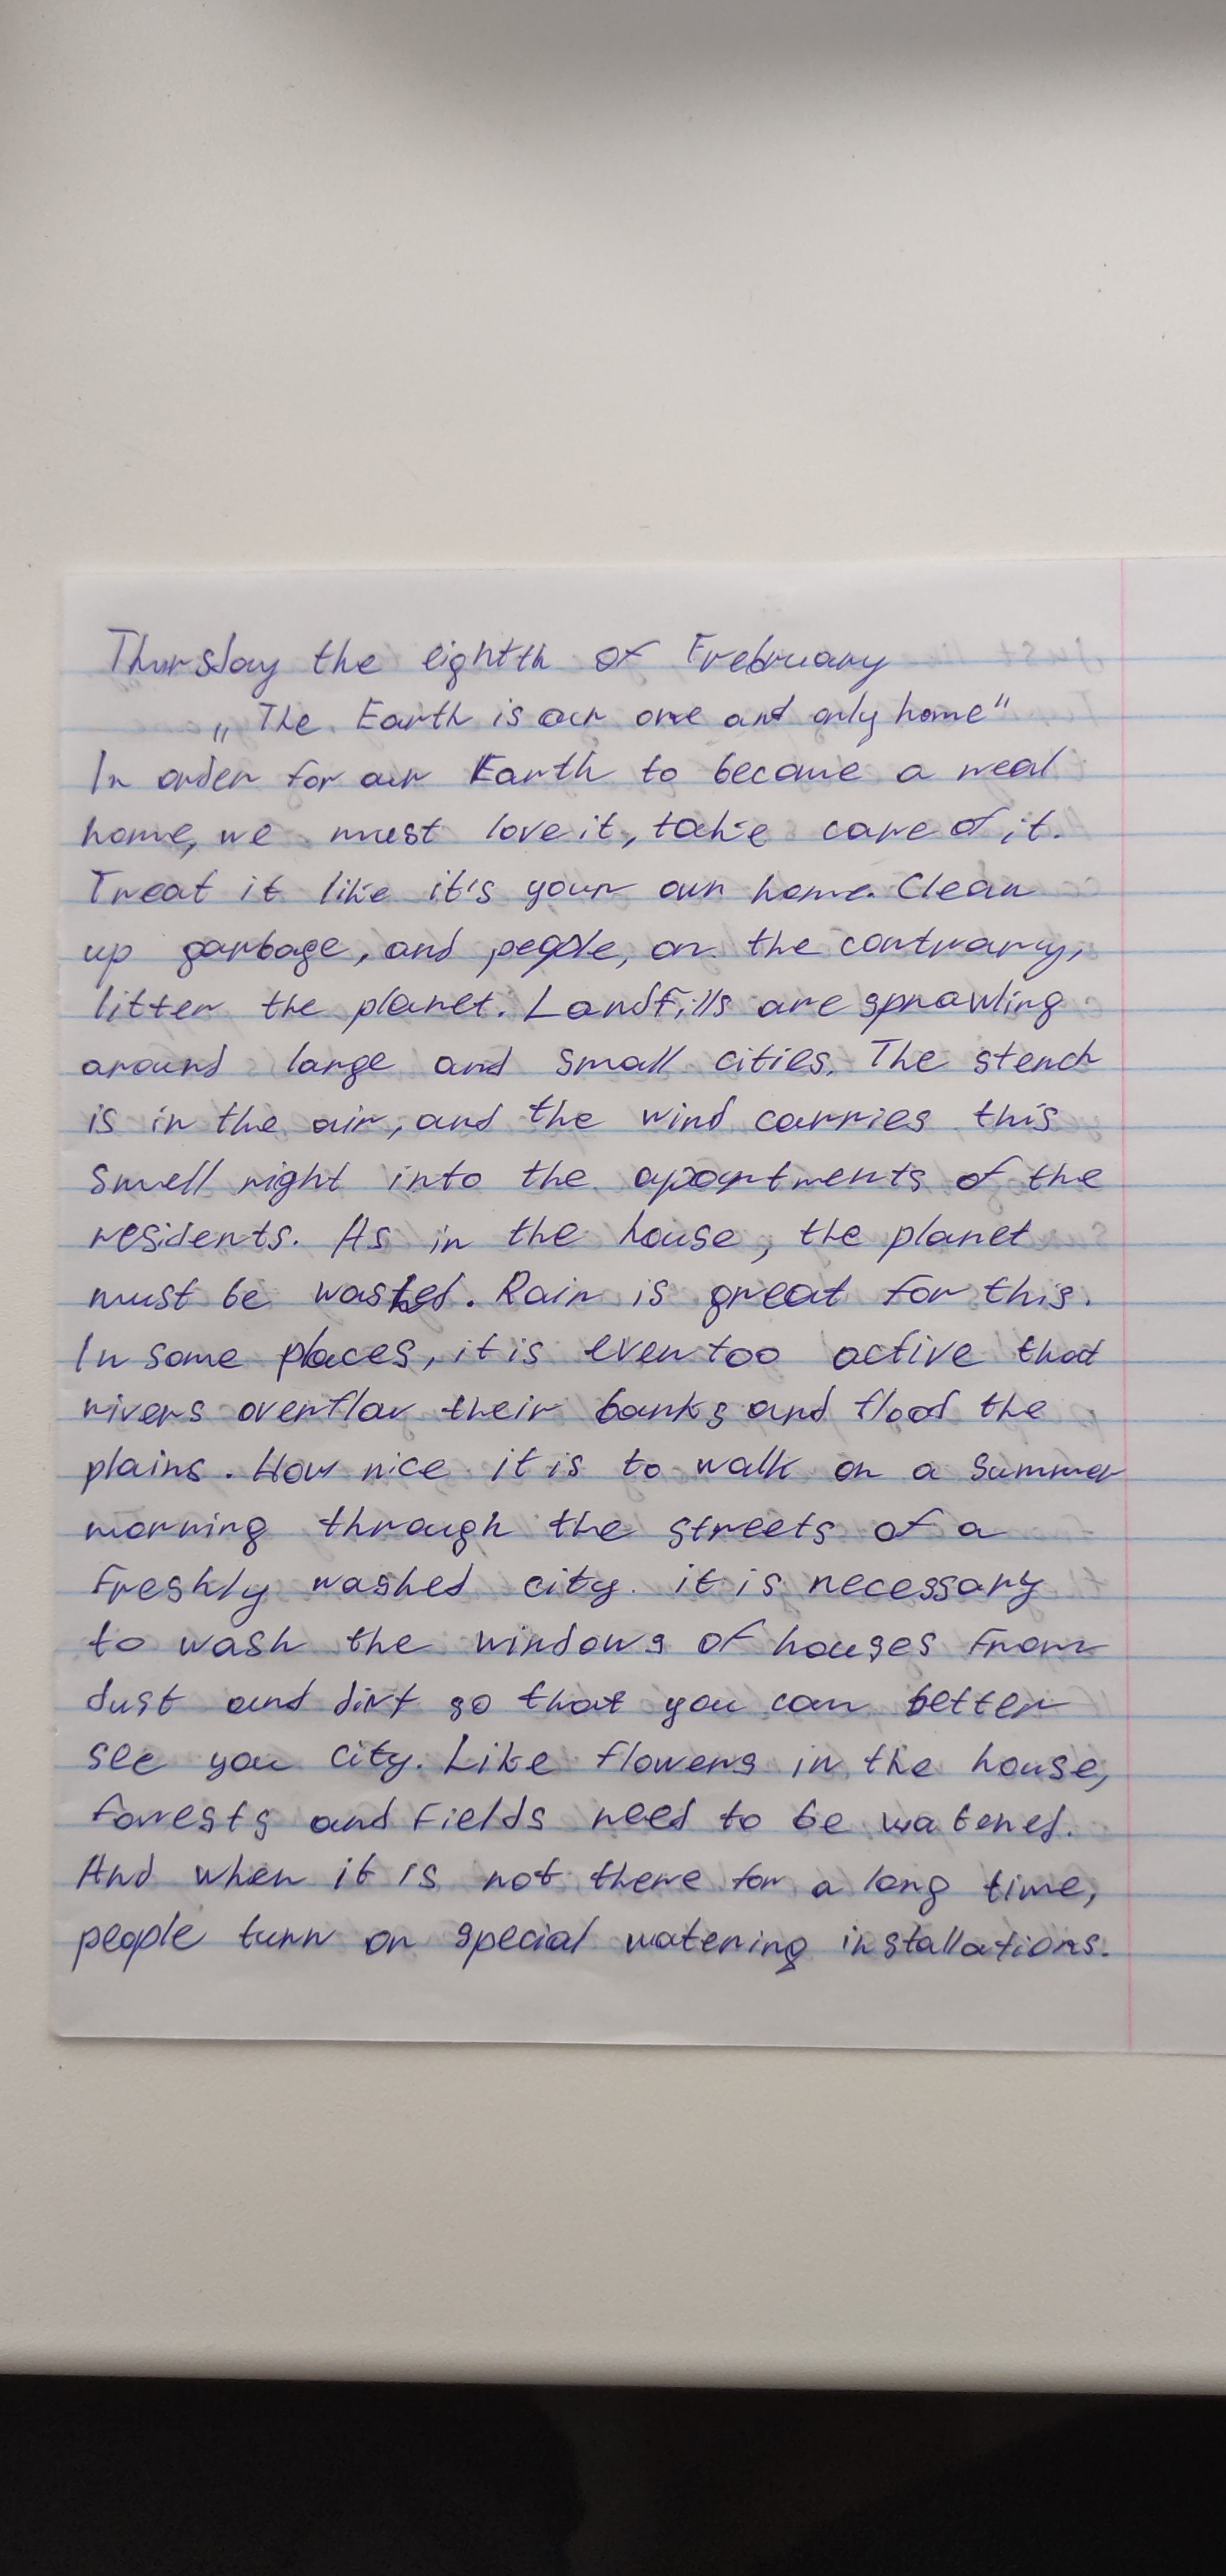 Thursday the eightth of Frebruary
„The Earth is our one and only home"
In order for our Earth to become a real
home, we must love it, take care of it.
Treat it like it's your own home. Clean
up garbage, and people, on the contrary,
litter the planet. Landfills are sprawling
around large and small cities. The stench
is in the air, and the wind carries this
smell right into the apartments of the
residents. As in the house, the planet
must be washed. Rain is great for this.
In some places, it is even too active that
rivers overflow their banks and flood the
plains. How nice it is to walk on a summer
morning through the streets of a
freshly washed city. it is necessary
to wash the windows of houses from
dust and dirt so that you can better
see you city. Like flowers in the house,
forests and fields need to be watered.
And when it is not there for a long time,
people turn on special watering installations.